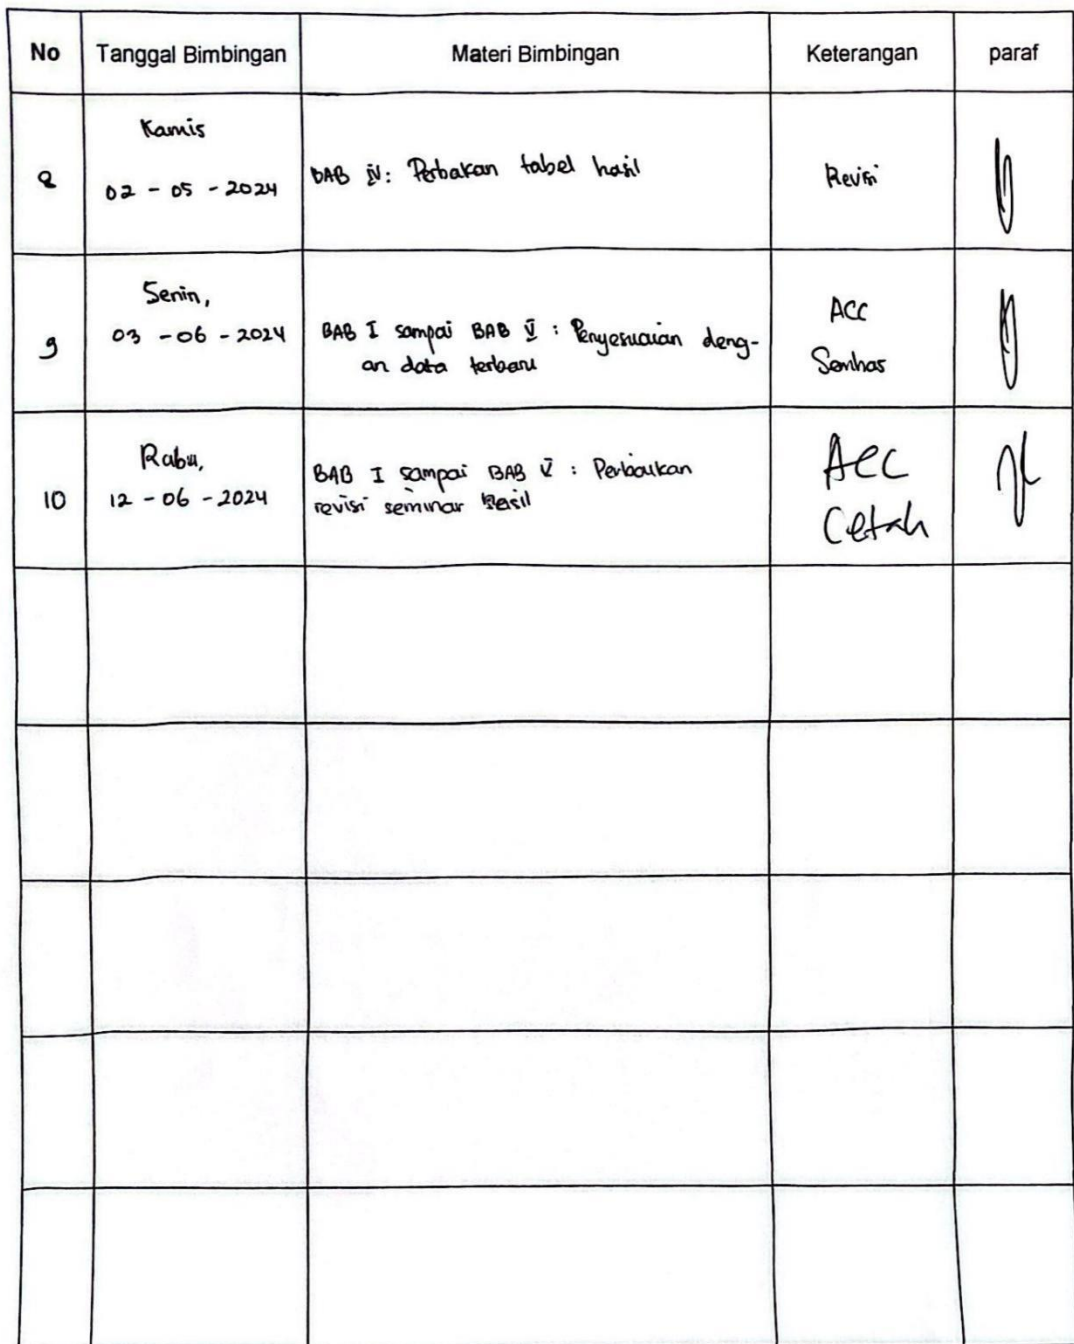 No Tanggal Bimbingan Materi Bimbingan Keterangan paraf
Kamis
8 02 - 05 - 2024 BAB IV: Perbakan tabel hasil Revisi
Senin,
9 03 - 06 - 2024 BAB I sampai BAB V : Penyesuaian deng- ACC
an data terbaru Semhas
Rabu,
10 12 - 06 - 2024 BAB I sampai BAB V : Perbaikan ACC
revisi seminar Hasil Cetak